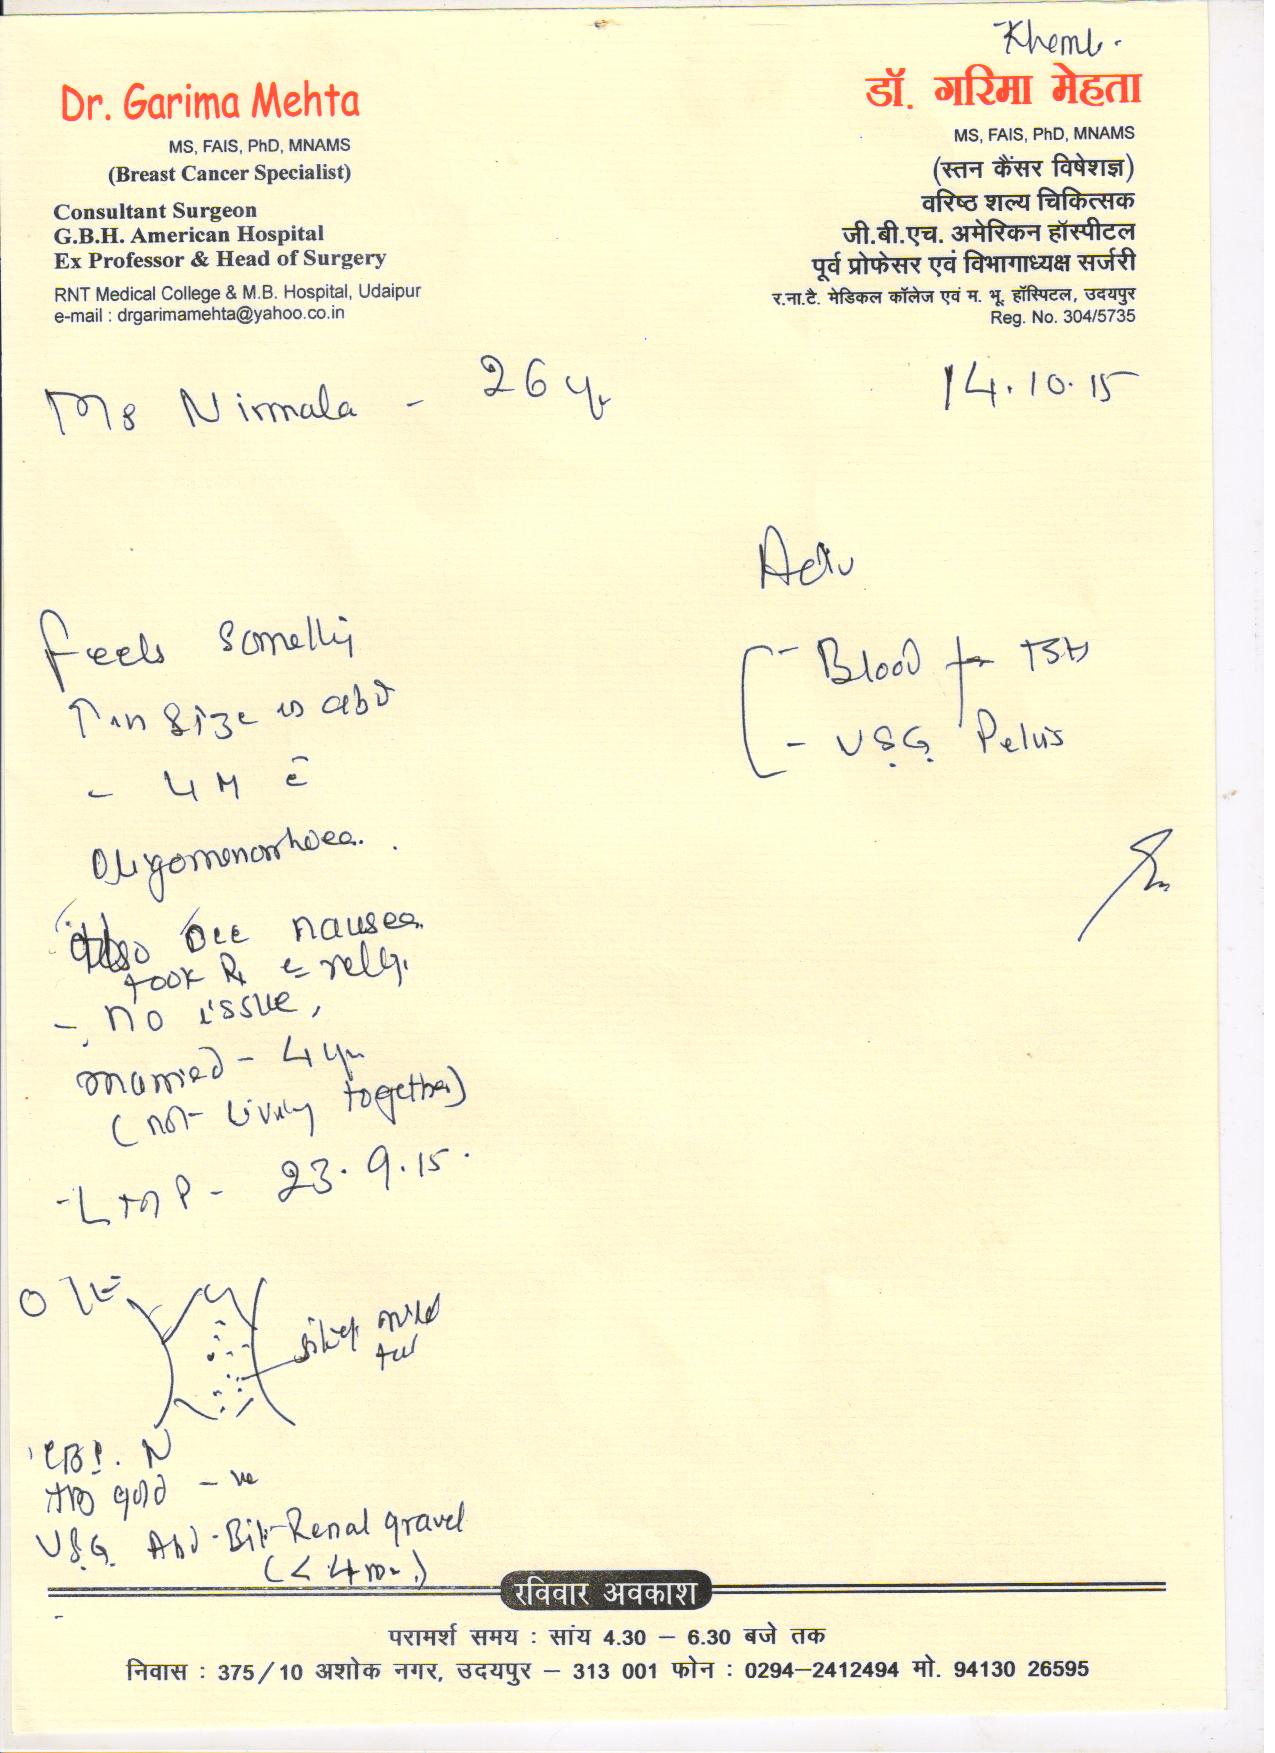 Dr. Garima Mehta
MS, FAIS, PhD, MNAMS
(Breast Cancer Specialist)
Consultant Surgeon
G.B.H. American Hospital
Ex Professor & Head of Surgery
RNT Medical College & M.B. Hospital, Udaipur
e-mail : drgarimamehta@yahoo.co.in
डॉ. गरिमा मेहता
MS, FAIS, PhD, MNAMS
(स्तन कैंसर विषेशज्ञ)
वरिष्ठ शल्य चिकित्सक
जी.बी.एच. अमेरिकन हॉस्पीटल
पूर्व प्रोफेसर एवं विभागाध्यक्ष सर्जरी
र.ना.टै. मेडिकल कॉलेज एवं म. भू. हॉस्पिटल, उदयपुर
Reg. No. 304/5735
Ms Nirmala - 26 yr
14.10.15
feels
↑ in size in abd
- 4 M c̄
Oligomenorrhoea.
Also Occ nausea
took Rx c̄
- no issue,
married - 4 yr
(not living together)
- LMP - 23.9.15.
O/E
mild
N
- ve
USG Abd - Bil - Renal gravel
(< 4 mm)
Adv
- Blood for TSH
- USG Pelvis
रविवार अवकाश
परामर्श समय : सांय 4.30 – 6.30 बजे तक
निवास : 375/10 अशोक नगर, उदयपुर – 313 001 फोन : 0294–2412494 मो. 94130 26595